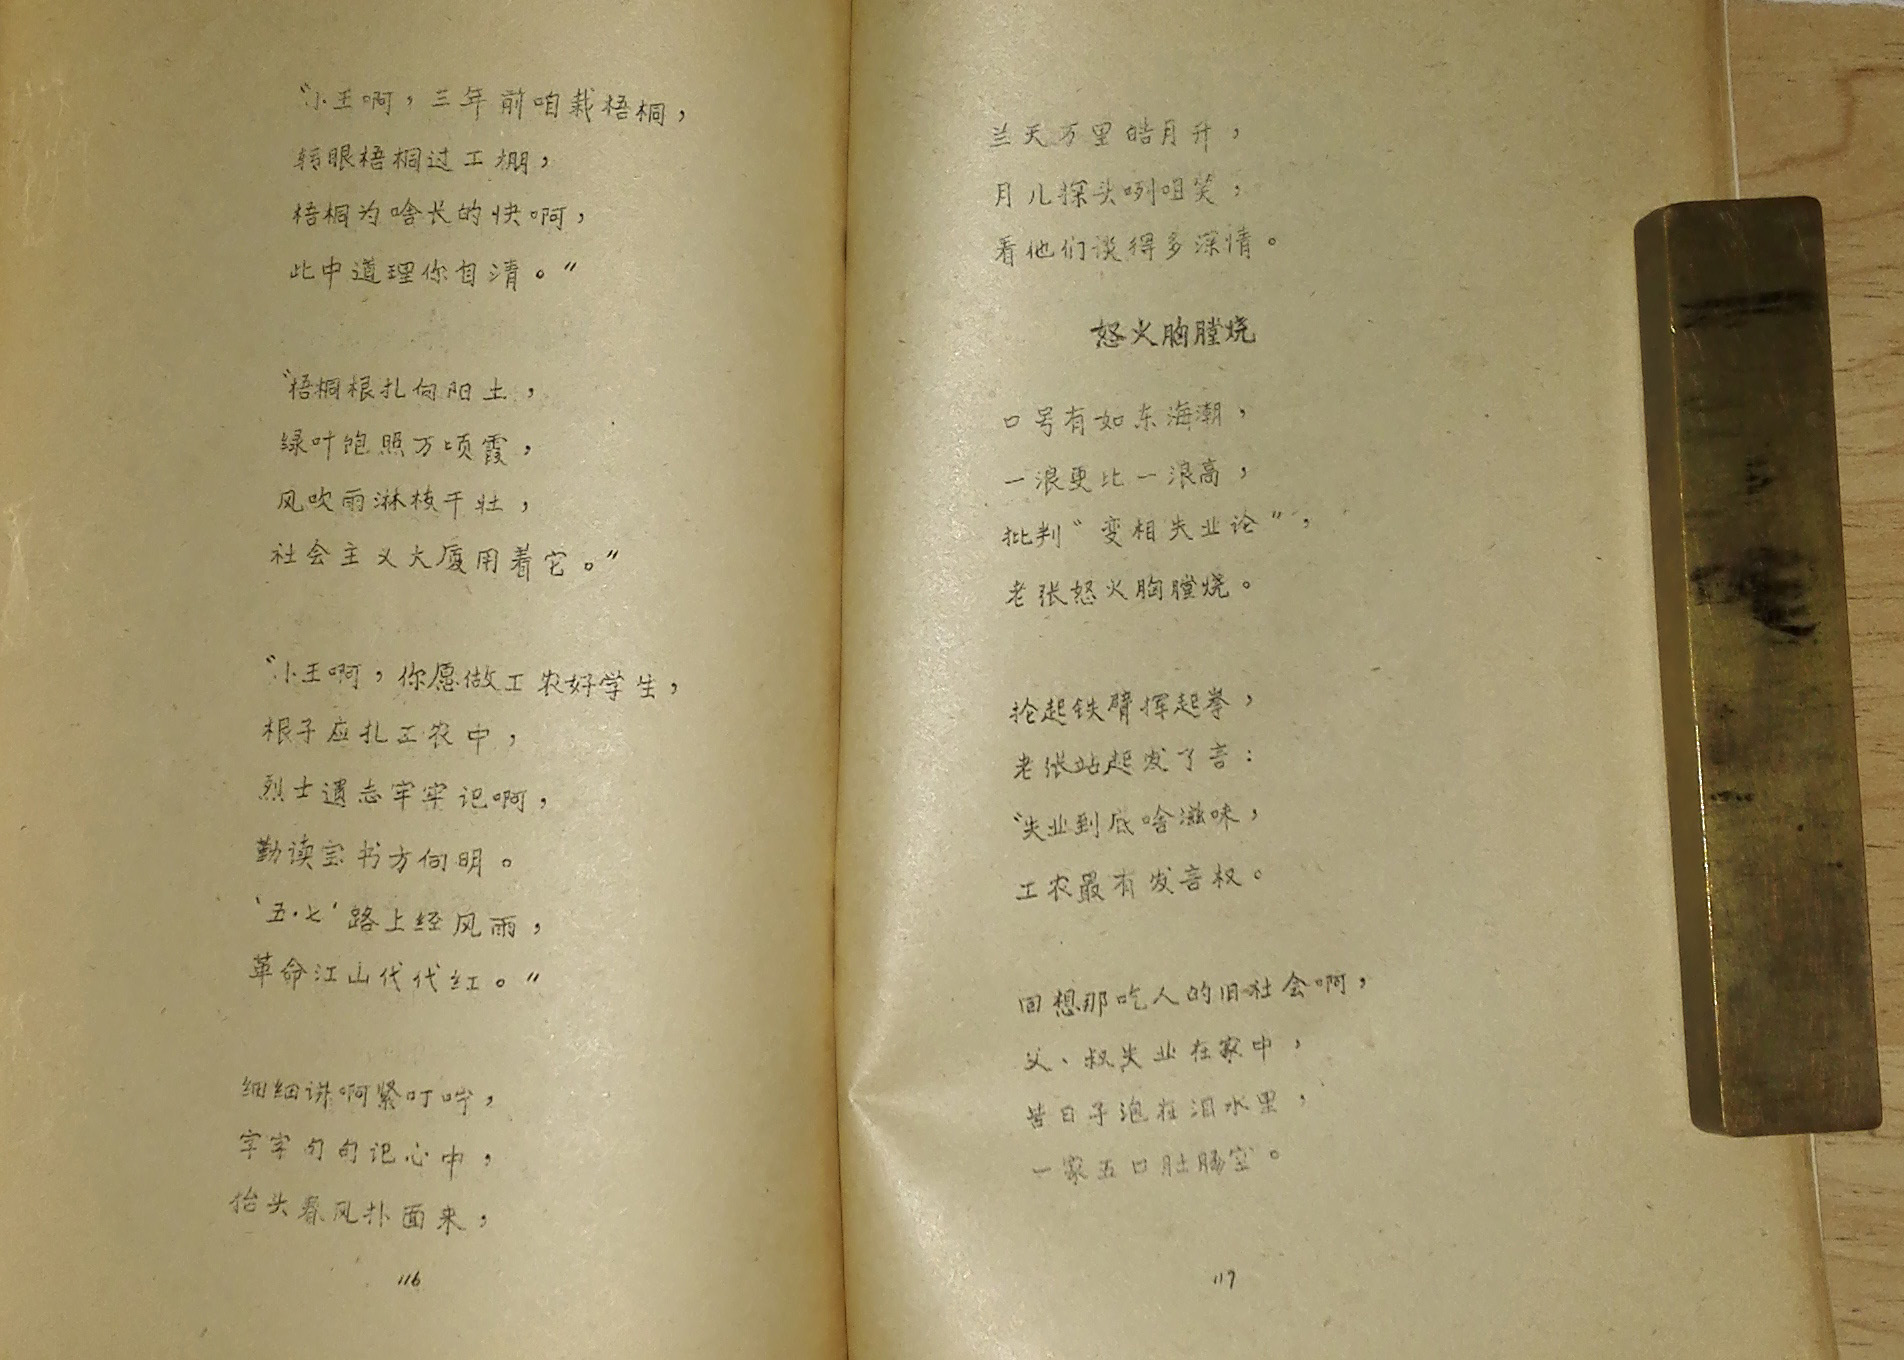 “小王啊，三年前咱栽梧桐，
转眼梧桐过工棚，
梧桐为啥长的快啊，
此中道理你自清。”
“梧桐根扎向阳土，
绿叶饱照万顷霞，
风吹雨淋枝干壮，
社会主义大厦用着它。”
“小王啊，你愿做工农好学生，
根子应扎工农中，
烈士遗志牢牢记啊，
勤读宝书方向明。
‘五·七’路上经风雨，
革命江山代代红。”
细细讲啊紧叮咛，
字字句句记心中，
抬头春风扑面来，
116
兰天万里皓月升，
月儿探头咧咀笑，
看他们谈得多深情。
怒火胸膛烧
口号有如东海潮，
一浪更比一浪高，
批判“变相失业论”，
老张怒火胸膛烧。
抡起铁臂挥起拳，
老张站起发了言：
“失业到底啥滋味，
工农最有发言权。
回想那吃人的旧社会啊，
父、叔失业在家中，
苦日子泡在泪水里，
一家五口肚肠空。
117